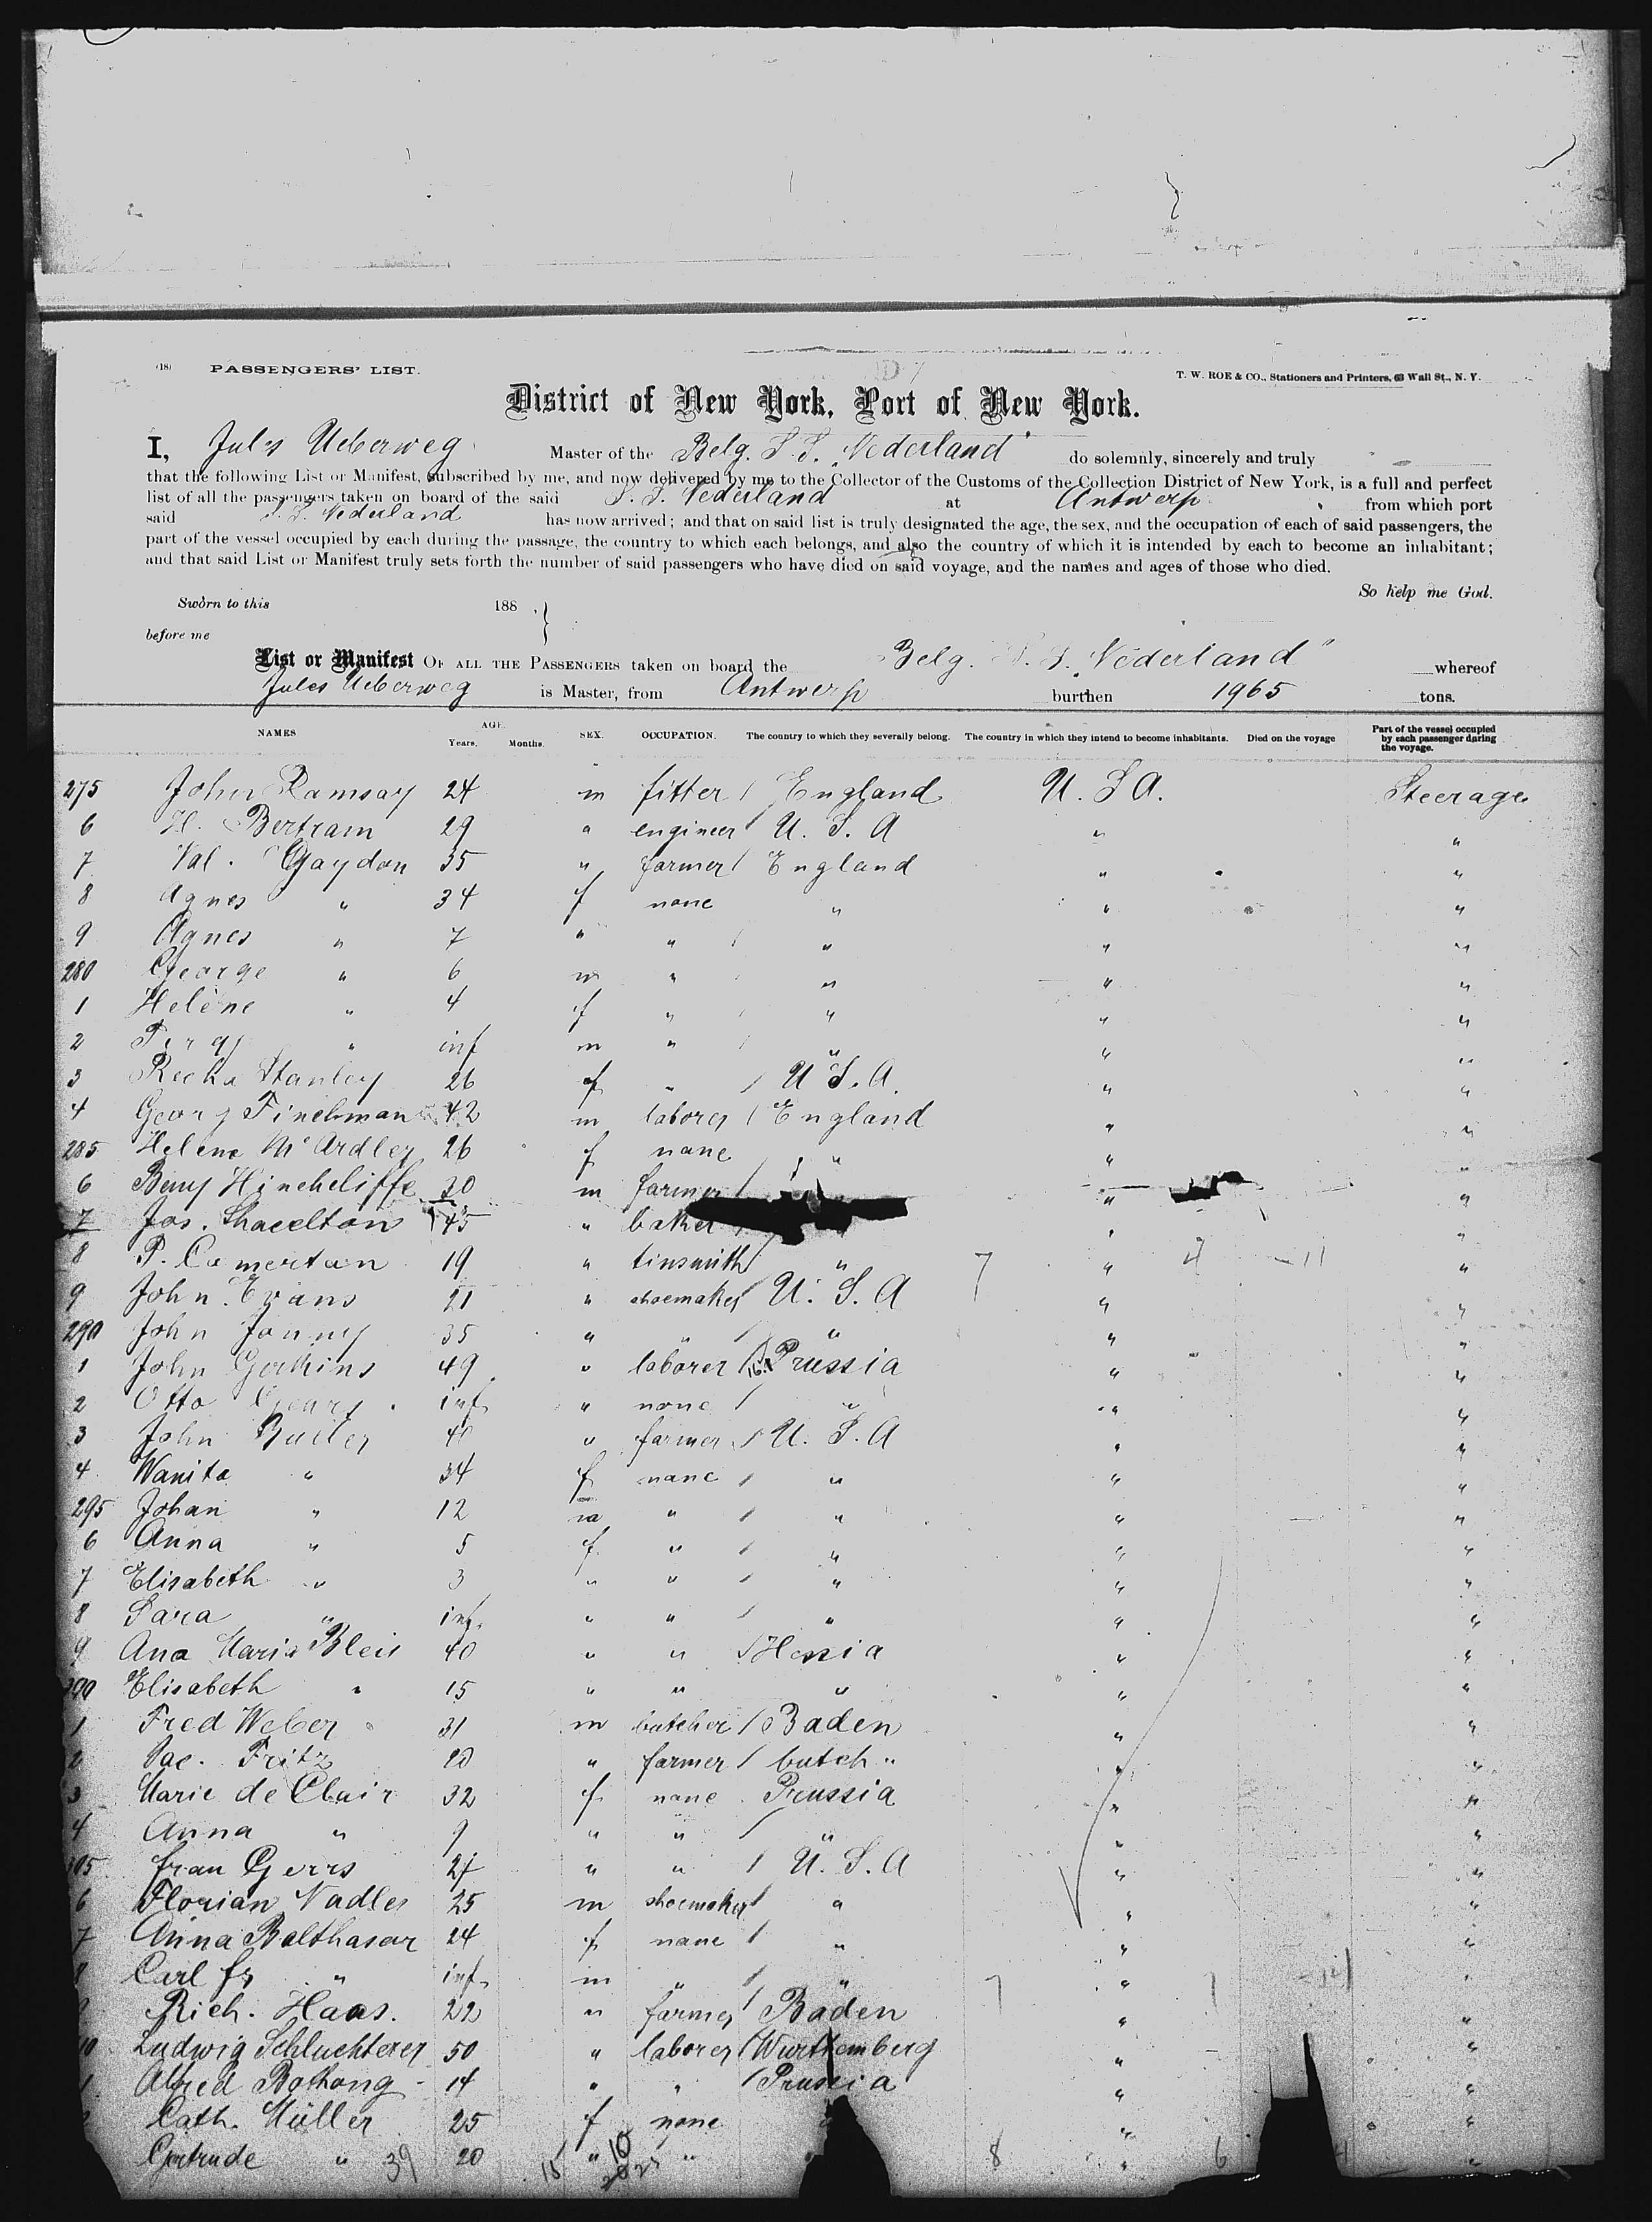 (18) PASSENGERS' LIST. T. W. ROE & CO., Stationers and Printers, 63 Wall St., N. Y.
District of New York, Port of New York.
I, Jules Ueberweg Master of the Belg. S.S. "Nederland" do solemnly, sincerely and truly
that the following List or Manifest, subscribed by me, and now delivered by me to the Collector of the Customs of the Collection District of New York, is a full and perfect
list of all the passengers taken on board of the said S.S. Nederland at Antwerp from which port
said S.S. Nederland has now arrived; and that on said list is truly designated the age, the sex, and the occupation of each of said passengers, the
part of the vessel occupied by each during the passage, the country to which each belongs, and also the country of which it is intended by each to become an inhabitant;
and that said List or Manifest truly sets forth the number of said passengers who have died on said voyage, and the names and ages of those who died.
So help me God.
Sworn to this 188 , }
before me
List or Manifest OF ALL THE PASSENGERS taken on board the Belg. S.S. Nederland" whereof
Jules Ueberweg is Master, from Antwerp burthen 1965 tons.
NAMES AGE. Years. Months. SEX. OCCUPATION. The country to which they severally belong. The country in which they intend to become inhabitants. Died on the voyage Part of the vessel occupied by each passenger during the voyage.
275 John Ramsay 24 m fitter / England U. S A. Steerage
6 H. Bertram 29 " engineer / U. S. A " "
7 Val. Gaydon 35 " farmer / England " "
8 Agnes " 34 f none " " "
9 Agnes " 7 " " / " " "
280 George " 6 m " / " " "
1 Helene " 4 f " / " " "
2 " inf m " / " " "
3 Stanley 26 f " / U S. A. " "
4 Georg Finchman 42 m laborer / England " "
285 Helene McArdler 26 f none / " " "
6 Benj Hinchcliffe 30 m farmer / " "
7 Jos. Shacelton 45 " baker " "
8 P. Comerton 19 " tinsmith / " " "
9 John Evans 21 " shoemaker / U. S. A " "
290 John 35 " " / " " "
1 John Gerkins 49 " laborer / Prussia " "
2 Otto inf " none / " " "
3 John 40 " farmer / U. S. A " "
4 Wanita " 34 f none / " " "
295 Johan " 12 m " / " " "
6 Anna " 5 f " / " " "
7 Elisabeth " 3 " " / " " "
8 Sara " inf. " " / " " "
9 Ana Maria Bleis 40 " " / Hessia " "
300 Elisabeth " 15 " " " " "
1 Fred Weber 31 m butcher / Baden " "
2 Jac. Fritz 20 " farmer / " "
3 Marie de Clair 32 f none Prussia " "
4 Anna " 9 " " / " " "
305 frau Gerrs 24 " " / U. S. A " "
6 Florian Nadler 25 m shoemaker / " " "
7 Anna Balthasar 24 f none / " " "
8 Carl fr " inf. m " / " " "
9 Rich. Haas. 22 " farmer / Baden " "
10 Ludwig Schluchterer 50 " laborer / Wurttemberg " "
1 Alfred Bothong 14 " " / Prussia " "
2 Cath. Müller 25 f none " " "
Gertrude " 39 20 " " " "